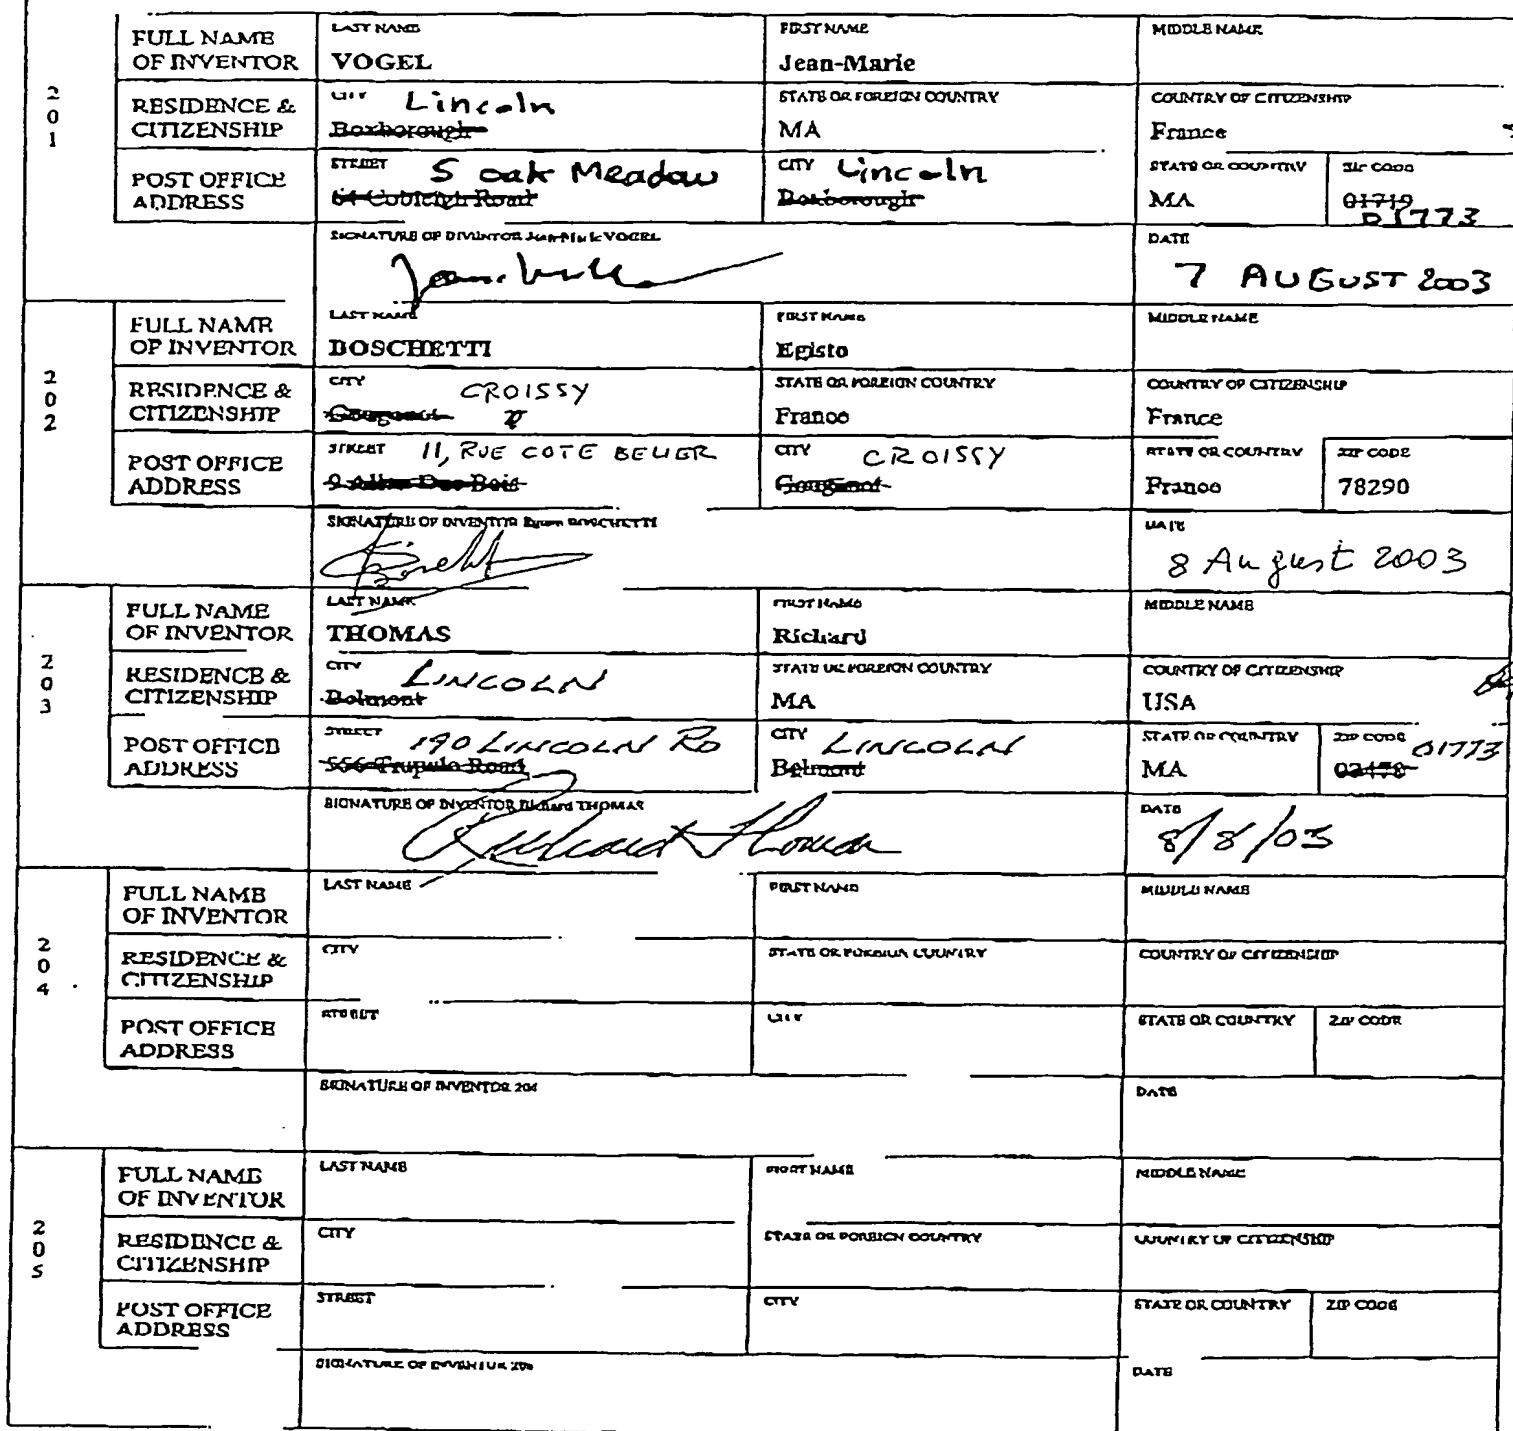 201
FULL NAME OF INVENTOR
LAST NAME
VOGEL
FIRST NAME
Jean-Marie
MIDDLE NAME
RESIDENCE & CITIZENSHIP
CITY Lincoln
Boxborough
STATE OR FOREIGN COUNTRY
MA
COUNTRY OF CITIZENSHIP
France
POST OFFICE ADDRESS
STREET 5 oak Meadow
64 Cobleigh Road
CITY Lincoln
Boxborough
STATE OR COUNTRY
MA
ZIP CODE
01719
01773
SIGNATURE OF INVENTOR Jean-Marie VOGEL
DATE
7 AUGUST 2003
202
FULL NAME OF INVENTOR
LAST NAME
BOSCHETTI
FIRST NAME
Egisto
MIDDLE NAME
RESIDENCE & CITIZENSHIP
CITY CROISSY
STATE OR FOREIGN COUNTRY
France
COUNTRY OF CITIZENSHIP
France
POST OFFICE ADDRESS
STREET 11, RUE COTE BELIER
9 Allee Des Bois
CITY CROISSY
STATE OR COUNTRY
France
ZIP CODE
78290
SIGNATURE OF INVENTOR Egisto BOSCHETTI
DATE
8 August 2003
203
FULL NAME OF INVENTOR
LAST NAME
THOMAS
FIRST NAME
Richard
MIDDLE NAME
RESIDENCE & CITIZENSHIP
CITY LINCOLN
Belmont
STATE OR FOREIGN COUNTRY
MA
COUNTRY OF CITIZENSHIP
USA
POST OFFICE ADDRESS
STREET 190 LINCOLN RD
556 Trapelo Road
CITY LINCOLN
Belmont
STATE OR COUNTRY
MA
ZIP CODE 01773
02478
SIGNATURE OF INVENTOR Richard THOMAS
Richard Thomas
DATE
8/8/03
204
FULL NAME OF INVENTOR
LAST NAME
FIRST NAME
MIDDLE NAME
RESIDENCE & CITIZENSHIP
CITY
STATE OR FOREIGN COUNTRY
COUNTRY OF CITIZENSHIP
POST OFFICE ADDRESS
STREET
CITY
STATE OR COUNTRY
ZIP CODE
SIGNATURE OF INVENTOR 204
DATE
205
FULL NAME OF INVENTOR
LAST NAME
FIRST NAME
MIDDLE NAME
RESIDENCE & CITIZENSHIP
CITY
STATE OR FOREIGN COUNTRY
COUNTRY OF CITIZENSHIP
POST OFFICE ADDRESS
STREET
CITY
STATE OR COUNTRY
ZIP CODE
SIGNATURE OF INVENTOR 205
DATE